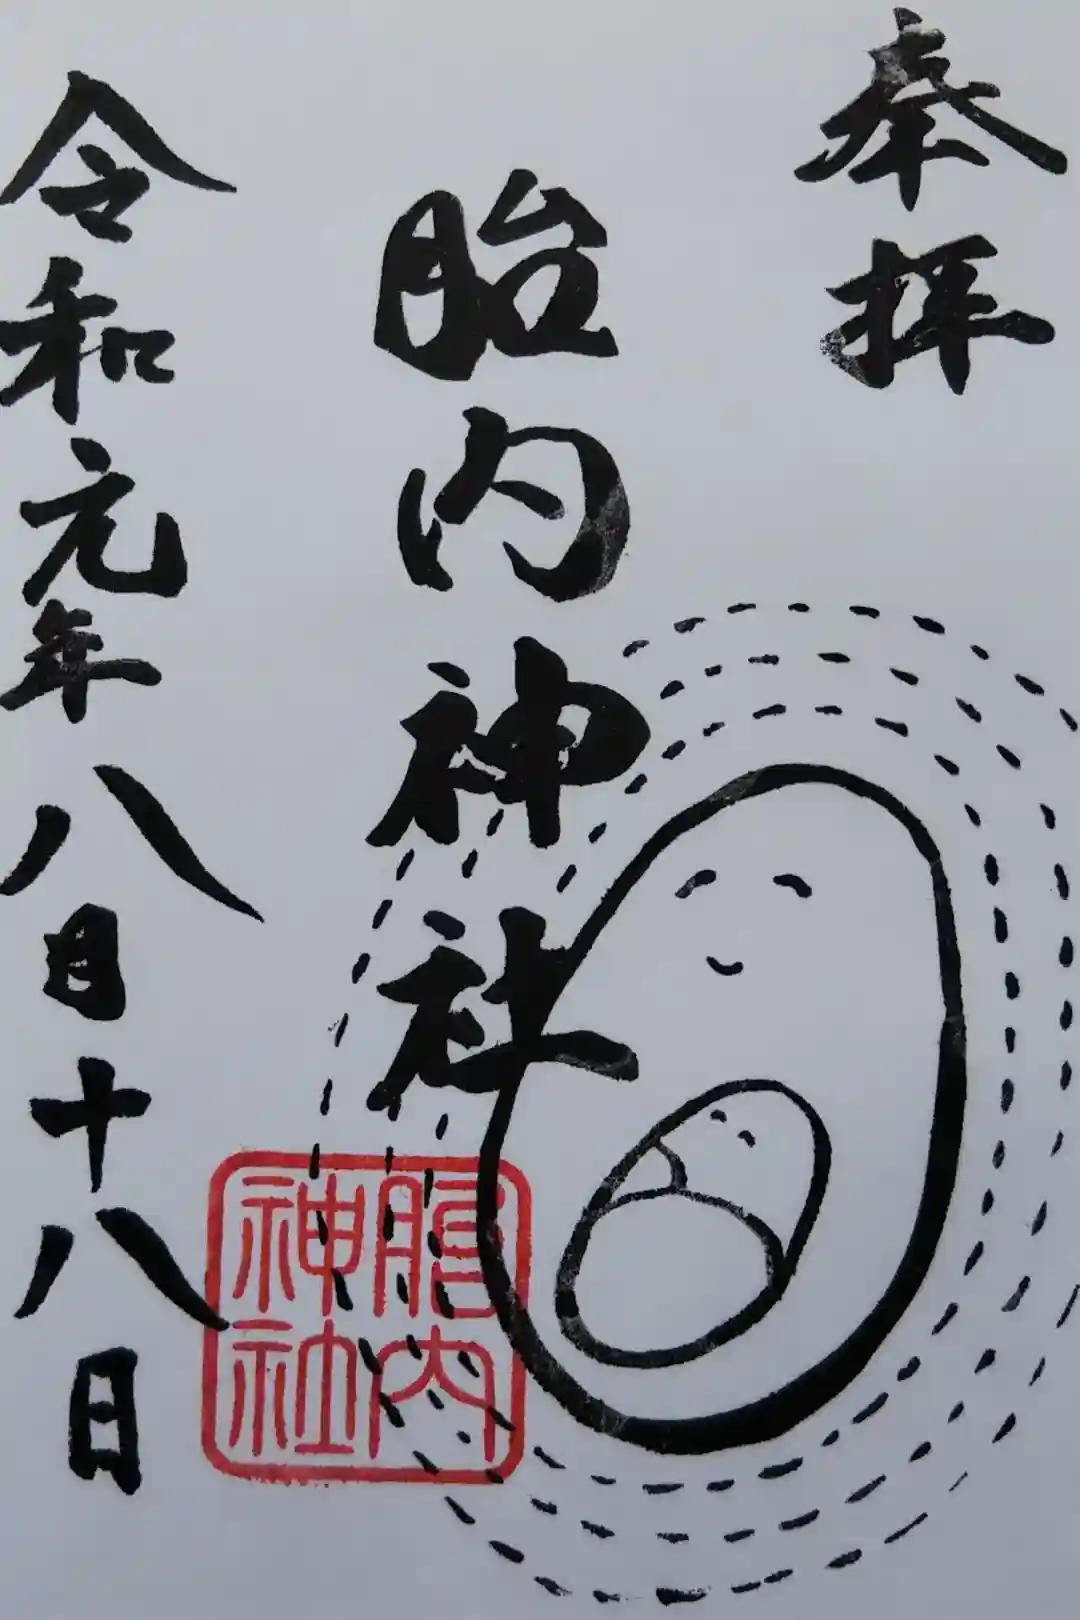 奉拝
胎内神社
令和元年八月十八日
胎内
神社